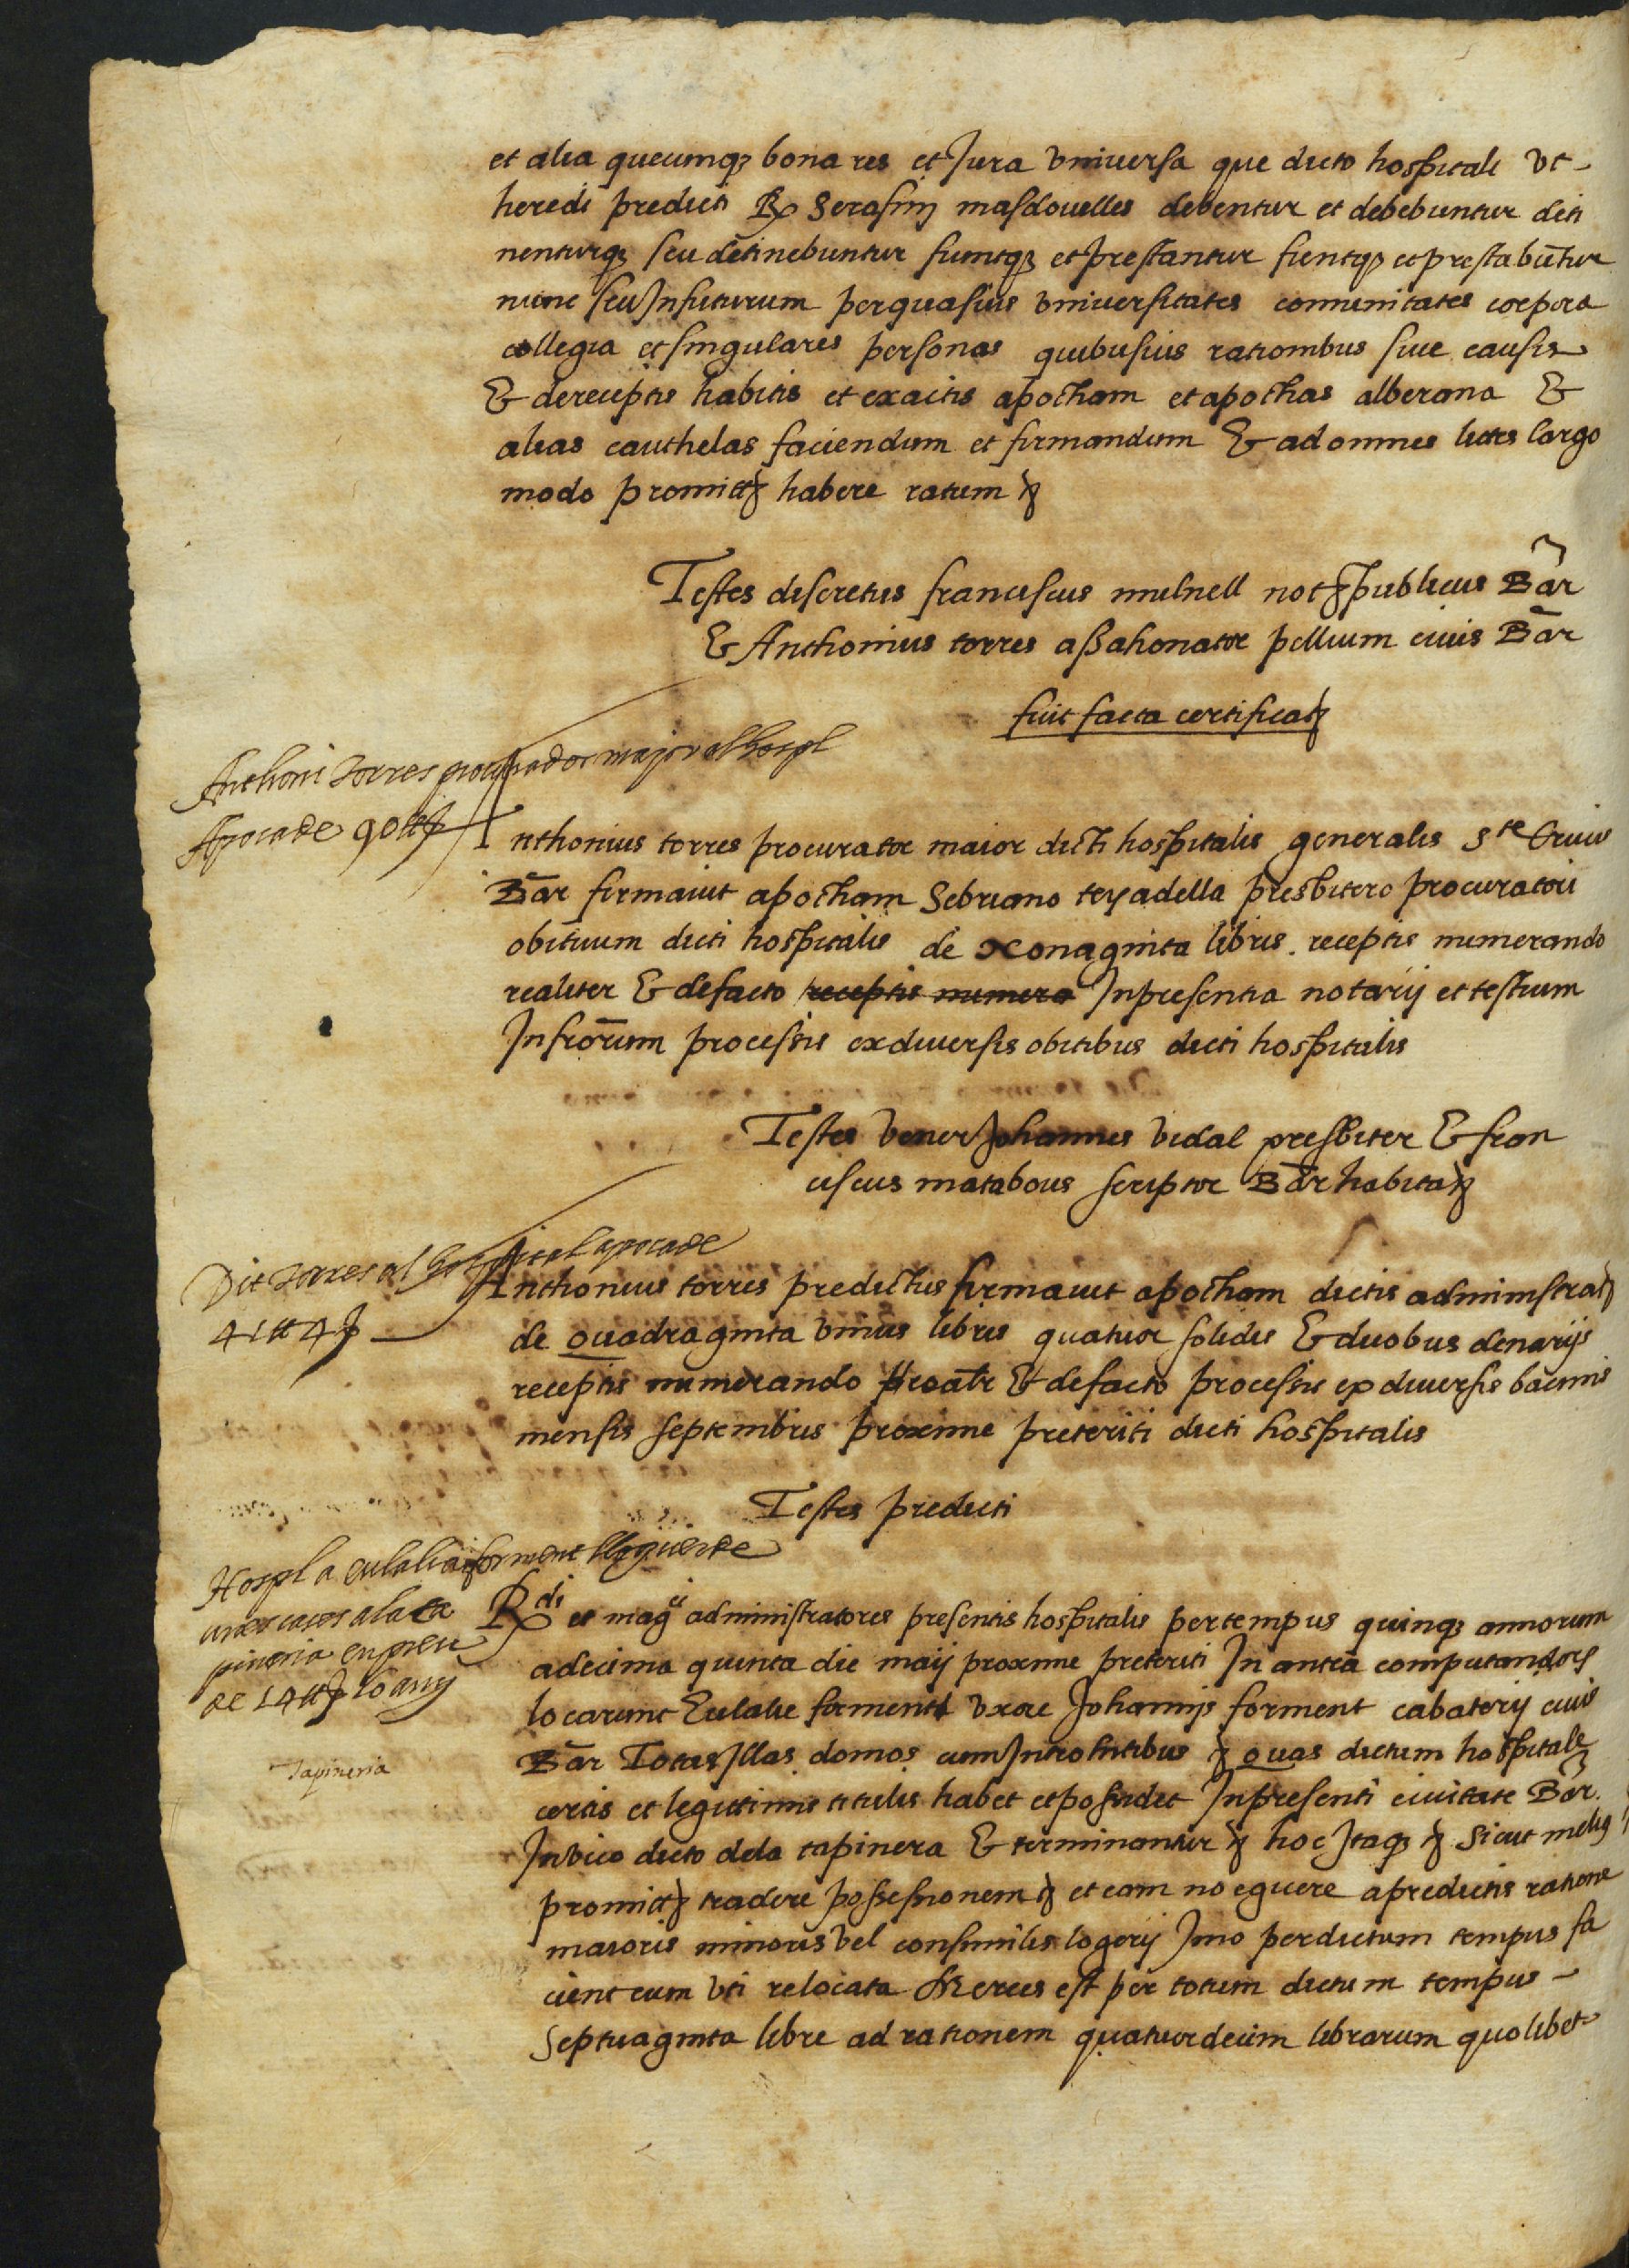 et alia queumqʒ bona res et Jura vniuersa que dicto hospitali vt
heredi predicti Rx Serafinj masdouelles debentur et debebuntur deti
nenturqʒ seu detinebuntur fiuntqʒ et prestantur fientqʒ et prestabūtur
nunc seu Jnfuturum per quasuis vniuersitates comunitates corpora
collegia et singulares personas quibusuis rationibus siue causis
& de receptis habitis et exactis apocham et apochas alberana &
alias cauthelas faciendum et firmandum & ad omnes lites largo
modo promittʒ habere ratum ʒ
Testes discretus franciscus mulnell notʒ publicus Bar
& Anthonius torres assahonator pellium ciuis Bar
fuit facta certificatʒ
Anthoni Torres procurador major al hospl
Apoca de 90 ℔
Anthonius torres procurator maior dicti hospitalis generalis Ste Crucis
Bar firmauit apocham Sebriano teyadella presbitero procuratori
obituum dicti hospitalis de xonaginta libris receptis numerando
realiter & de facto receptis numera Jnpresentia notarij et testium
Jnfrorum processis ex diuersis obitibus dicti hospitalis
Testes vener Johannes vidal presbiter & fran
ciscus matabous scriptor Bar habitaʒ
Dit Torres al hospital apoca de
41 ℔ 4 ſ
Anthonius torres predictus firmauit apocham dictis administratʒ
de quadraginta vnius libris quatuor solidis & duobus denarijs
receptis numerando & de facto processis ex diuersis bacinis
mensis septembris proxime preteriti dicti hospitalis
Testes predicti
Hospl a eulalia forment lloguer de
unes cases a la ta
pineria en preu
de 14 ℔ lo any
Tapineria
Rdi et magci administratores presentis hospitalis per tempus quinqʒ annorum
a decima quinta die maij proxime preteriti Jn antea computandors
locarunt Eulalie forment vxore Johannis forment cabaterij ciuis
Bar Totas Jllas domos cum Introhitibus ʒ quas dictum hospitale
certis et legittimis titulis habet et possidet Jnpresenti ciuitate Bar.
Jnvico dicto dela tapinera & terminantur ʒ hoc Jtaqʒ ʒ sicut melius
promittʒ tradere possessionem ʒ et eam no eguere a predictis ratione
maioris minoris vel consimilis logerij Jmo per dictum tempus fa
cient eum vti relocata Merces est per totum dictum tempus
septuaginta libre ad rationem quaturdecim librarum quolibet